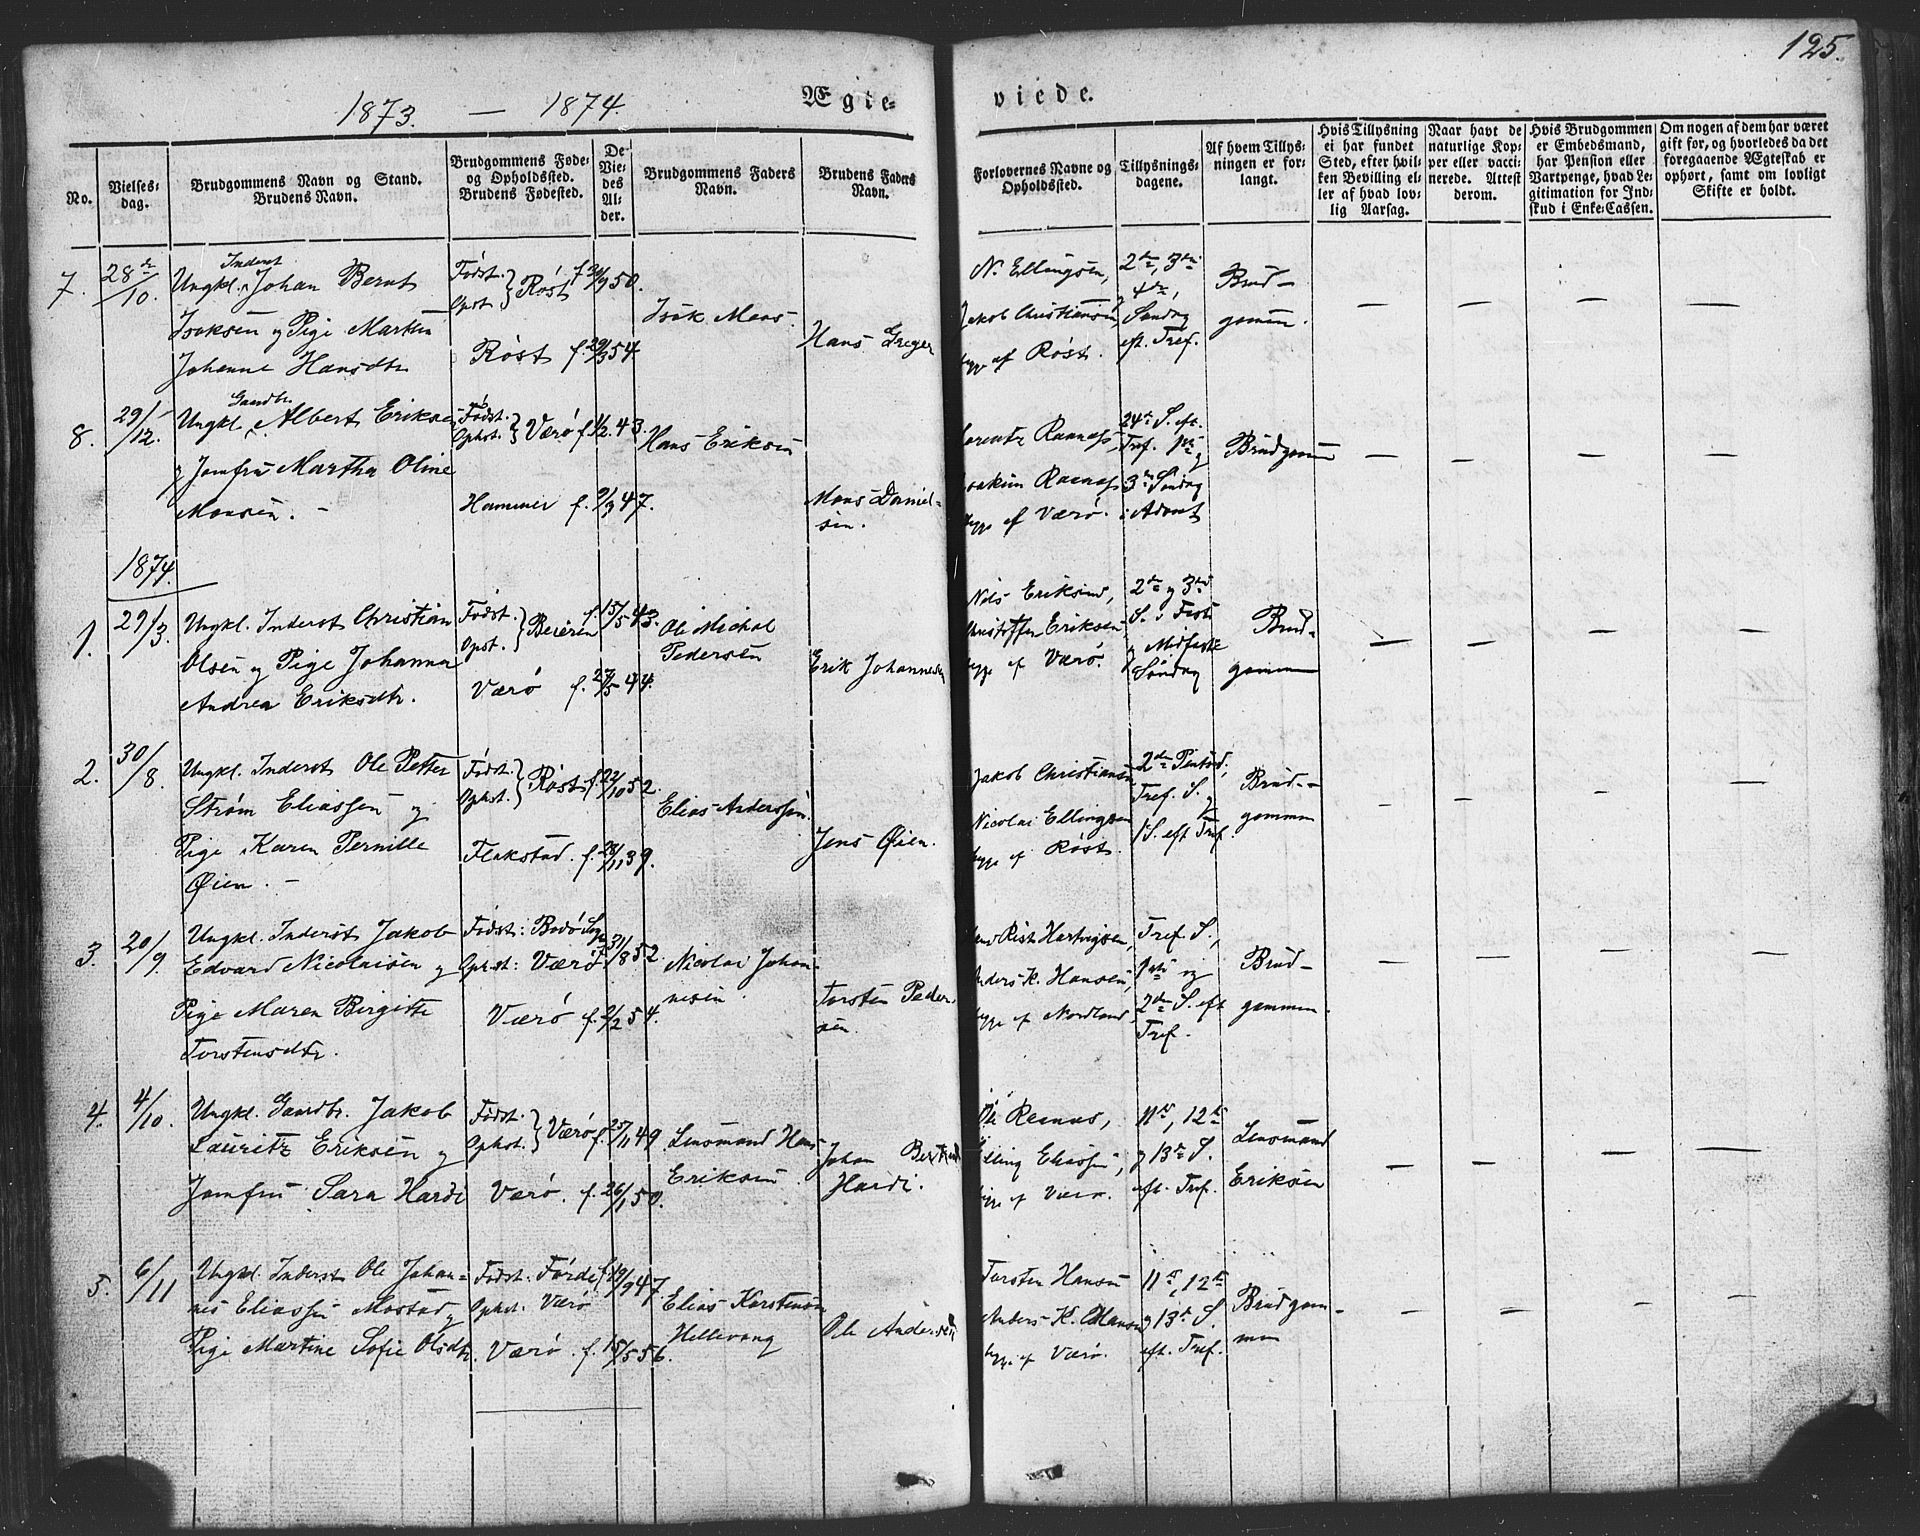 125.
1873. — 1874.
Ægteviede.
No.
Vielsesdag.
Brudgommens Navn og Stand.
Brudens Navn.
Brudgommens Fødeog Opholdsted.
Brudens Fødested.
De Viedes Alder.
Brudgommens Faders Navn.
Brudens Faders Navn.
Forlovernes Navne og Opholdssted.
Tillysningsdagene.
Af hvem Tillysningen er forlangt.
Hvis Tillysning ei har fundet Sted, efter hvilken Bevilling eller af hvad lovlig Aarsag.
Naar havt de naturlige Kopper eller vaccinerede. Attest derom.
Hvis Brudgommen er Embedsmand, har Pension eller Vartpenge, hvad Legitimation for Indskud i Enke-Cassen.
Om nogen af dem har været gift før, og hvorledes da det foregaaende Ægteskab er ophørt, samt om lovligt Skifte er holdt.
7. 28de/10. Ungkl. Inderst Johan Bernt Isaksen og Pige Martha Johanne Hansdtr
Født. Opst. } Røst f. 9 50.
Røst f. 29/3 54
Isak Mons.
Hans Greger
N. Ellingsen, Jakob Christiansen, begge af Røst.
2de, 3die og 4de, Søndag eft. Tref.
Brudgomen.
— — — —
8. 29/12. Ungkl. Gaardbr. Albert Eriksen og Jomfru Martha Oline Monsen. —
Født. Ophst. } Værø f. 1/2. 43.
Hammer f. 9/3 47.
Hans Eriksen
Mons Danielsen.
Lorentz , Joakim , begge af Værø.
24de S. eft. Tref. 1ste og 3die Søndag i Advent
Brudgomen
— — — —
1874.
1. 29/3. Ungkl. Inderst Christian Olsen og Pige Johanna Andrea Eriksdtr.
Født. Opst. } Beieren f. 15/5 43.
Værø f. 27/5 44.
Ole Michal Pedersen
Erik Johannesen
Nils Eriksen, Christoffer Eriksen, begge af Værø.
2de og 3die S. i Faste og Midfaste Søndag
Brudgommen
— — — —
2. 30/8. Ungkl. Inderst Ole Petter Strøm Eliassen og Pige Karen Pernille Øien. —
Født. Ophst. } Røst f. 22/10 52.
Flakstad. f. 28/11 39.
Elias Anderssen.
Jens Øien.
Jakob Christiansen, Nicolai Ellingsen begge af Røst.
2den , Tref. S. og 1 S. eft Tref.
Brudgommen
— — — —
3. 20/9. Ungkl. Inderst Jakob Edvard Nicolaisen og Pige Maren Birgitte Torstensdtr.
Født: Bodø Ophst: Værø f. 31/8 52.
Værø f. 2/2 54.
Nicolai Johannesen.
Torsten Pedersen.
Hartvigsen, Anders K. Hansen, begge af Nordland,
Tref. S., 1ste og 2den S. eft Tref.
Brudgommen.
— — — —
4. 4/10. Ungkl. Gaardbr. Jakob Lauritz Eriksen og Jomfru Sara Hardi
Født. Ophst. } Værø f. 25/11 49.
Værø. f. 26/1 50.
Lensmand Hans Eriksen.
Johan Hardi.
Ole , Elling Eliassen, begge af Værø.
11te, 12te og 13de S. eft. Tref.
Lensmand Eriksen
— — — —
5. 6/11 Ungkl. Inderst Ole Johannes Eliassen Mostad og Pige Martine Sofie Olsdtr.
Født: Førde f. 19/9 47. Ophst: Værø
Værø f. 15/5 56.
Elias Karstensen Hellevang
Ole Andersen
Torsten Hansen Anders K. Hansen begge af Værø.
11te, 12te og 13de S. eft. Tref.
Brudgommen
— — — —